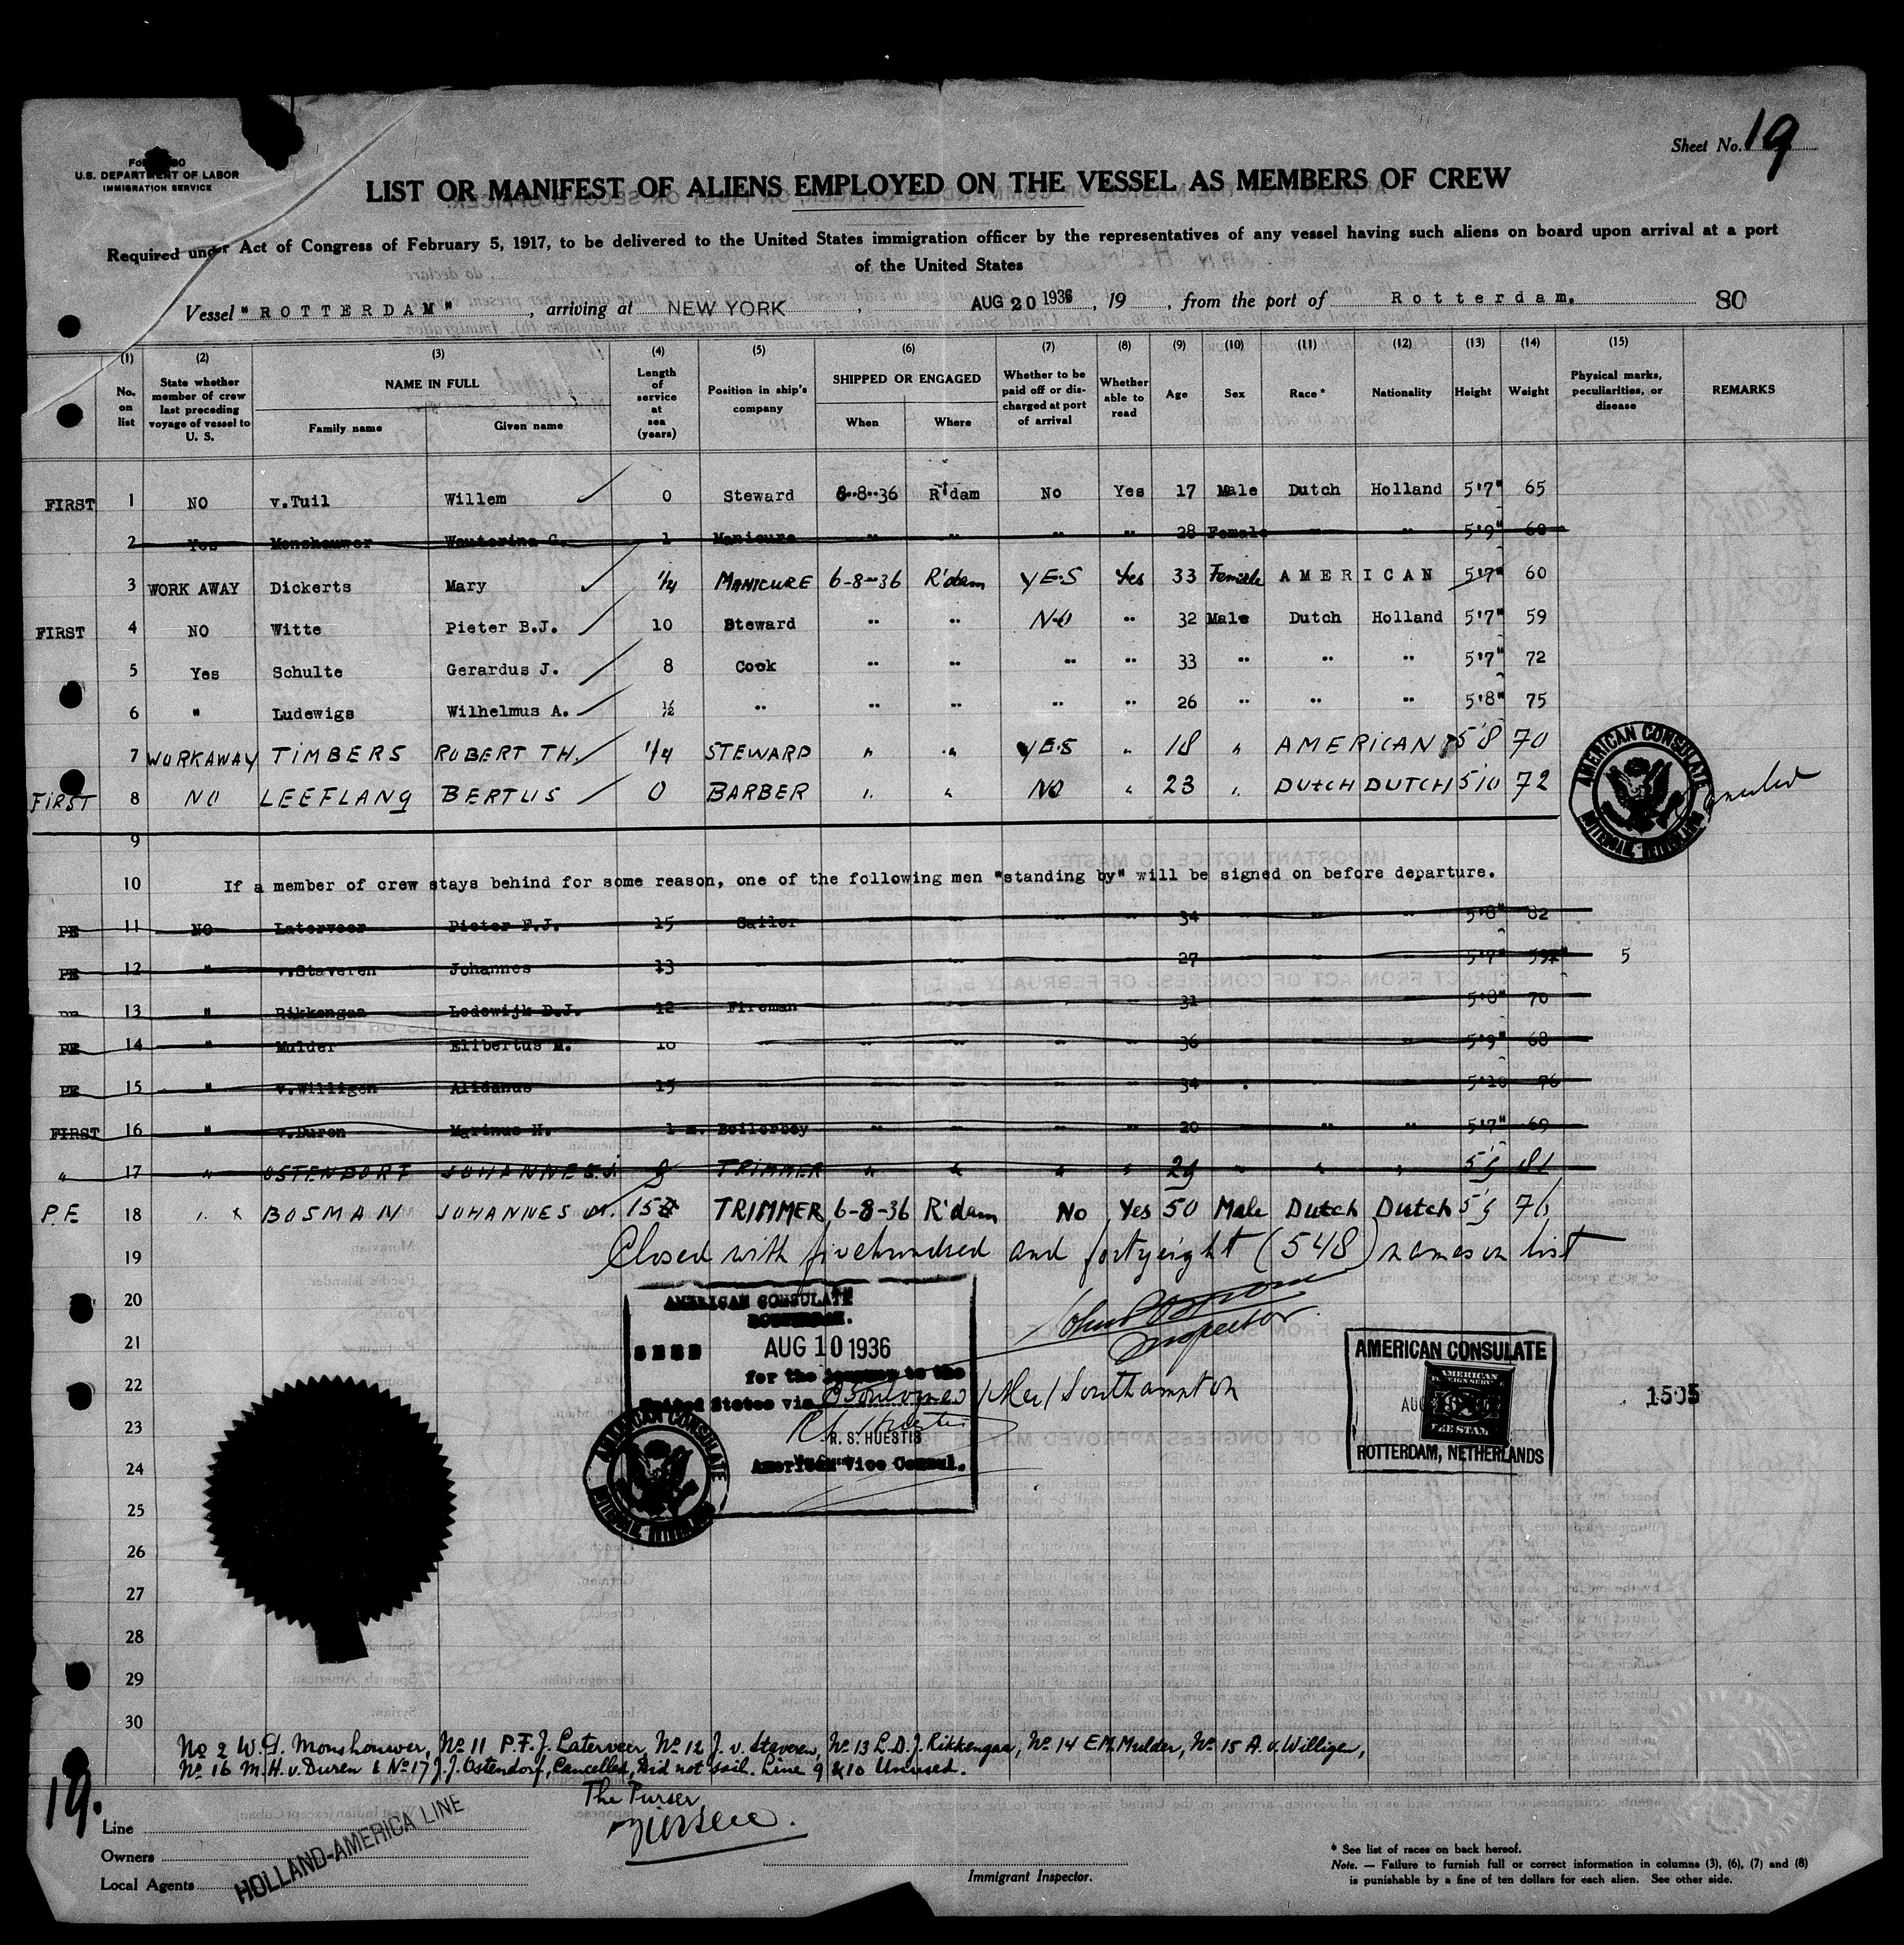 Sheet No. 19
U.S. DEPARTMENT OF LABOR
IMMIGRATION SERVICE
LIST OR MANIFEST OF ALIENS EMPLOYED ON THE VESSEL AS MEMBERS OF CREW
Required under Act of Congress of February 5, 1917, to be delivered to the United States immigration officer by the representatives of any vessel having such aliens on board upon arrival at a port
of the United States
Vessel "ROTTERDAM", arriving at NEW YORK, AUG 20 1936, 19 , from the port of Rotterdam. 80
(1) (2) (3) (4) (5) (6) (7) (8) (9) (10) (11) (12) (13) (14) (15)
No. on list State whether member of crew last preceding voyage of vessel to U. S. NAME IN FULL Family name Given name Length of service at sea (years) Position in ship's company SHIPPED OR ENGAGED When Where Whether to be paid off or discharged at port of arrival Whether able to read Age Sex Race* Nationality Height Weight Physical marks, peculiarities, or disease REMARKS
FIRST 1 NO v.Tuil Willem 0 Steward 6-8-36 R'dam No Yes 17 Male Dutch Holland 5'7" 65
2 Yes Monshouwer Wouterina G. 1 Manicure " " " " 28 Female " " 5'9" 60
3 WORK AWAY Dickerts Mary 1/4 MANICURE 6-8-36 R'dam YES Yes 33 Female AMERICAN 5'7" 60
FIRST 4 NO Witte Pieter B.J. 10 Steward " " NO " 32 Male Dutch Holland 5'7" 59
5 Yes Schulte Gerardus J. 8 Cook " " " " 33 " " " 5'7" 72
6 " Ludewigs Wilhelmus A. ½ " " " " " 26 " " " 5'8" 75
7 WORKAWAY TIMBERS ROBERT TH. 1/4 STEWARD " " YES " 18 " AMERICAN 5'8 70
FIRST 8 NO LEEFLANG BERTUS 0 BARBER " " NO " 23 " DUTCH DUTCH 5'10 72
AMERICAN CONSULATE
9
10 If a member of crew stays behind for some reason, one of the following men "standing by" will be signed on before departure.
PE 11 NO Laterveer Pieter F.J. 15 Sailor " " " " 34 " " " 5'8" 82
PE 12 " v.Staveren Johannes 13 " " " " " 27 " " " 5'7" 5
PE 13 " Rikkengaa Lodewijk D.J. 12 Fireman " " " " 31 " " " 5'8" 70
PE 14 " Mulder Elibertus M. " " " " " 36 " " " 5'9" 68
PE 15 " v.Willigen Alidanus 15 " " " " " 34 " " " 5'10 76
FIRST 16 " v.Duren Marinus H. 1 m. Boilerboy " " " " 20 " " " 5'7" 69
" 17 " OSTENDORF JOHANNES J. TRIMMER " " " " 29 " " " 5'9 81
P.E. 18 " x BOSMAN JOHANNES 15 TRIMMER 6-8-36 R'dam No Yes 50 Male Dutch Dutch 5'9 76
19 Closed with fivehundred and fortyeight (548) names on list
20
AMERICAN CONSULATE
ROTTERDAM.
21 AUG 10 1936
Inspector
for the journey to the
22 United States via Boulogne s/Mer/Southampton
23 R. S. HUESTIS
24 American Vice Consul.
AMERICAN CONSULATE
AMERICAN CONSULATE
AMERICAN
FEE STAMP
ROTTERDAM, NETHERLANDS
1505
25
26
27
28
29
30
No 2 W.G. Monshouwer, No 11 P.F.J. Laterveer, No 12 J. v. Staveren, No 13 L.D.J. Rikkengaa, No 14 E.M. Mulder, No 15 A.v.Willigen,
No 16 M.H.v.Duren & No 17 J.J. Ostendorf, Cancelled, Did not sail. Line 9 & 10 Unused.
19.
The Purser
Line
Owners
Local Agents
HOLLAND-AMERICA LINE
Immigrant Inspector.
* See list of races on back hereof.
Note. — Failure to furnish full or correct information in columns (3), (6), (7) and (8)
is punishable by a fine of ten dollars for each alien. See other side.